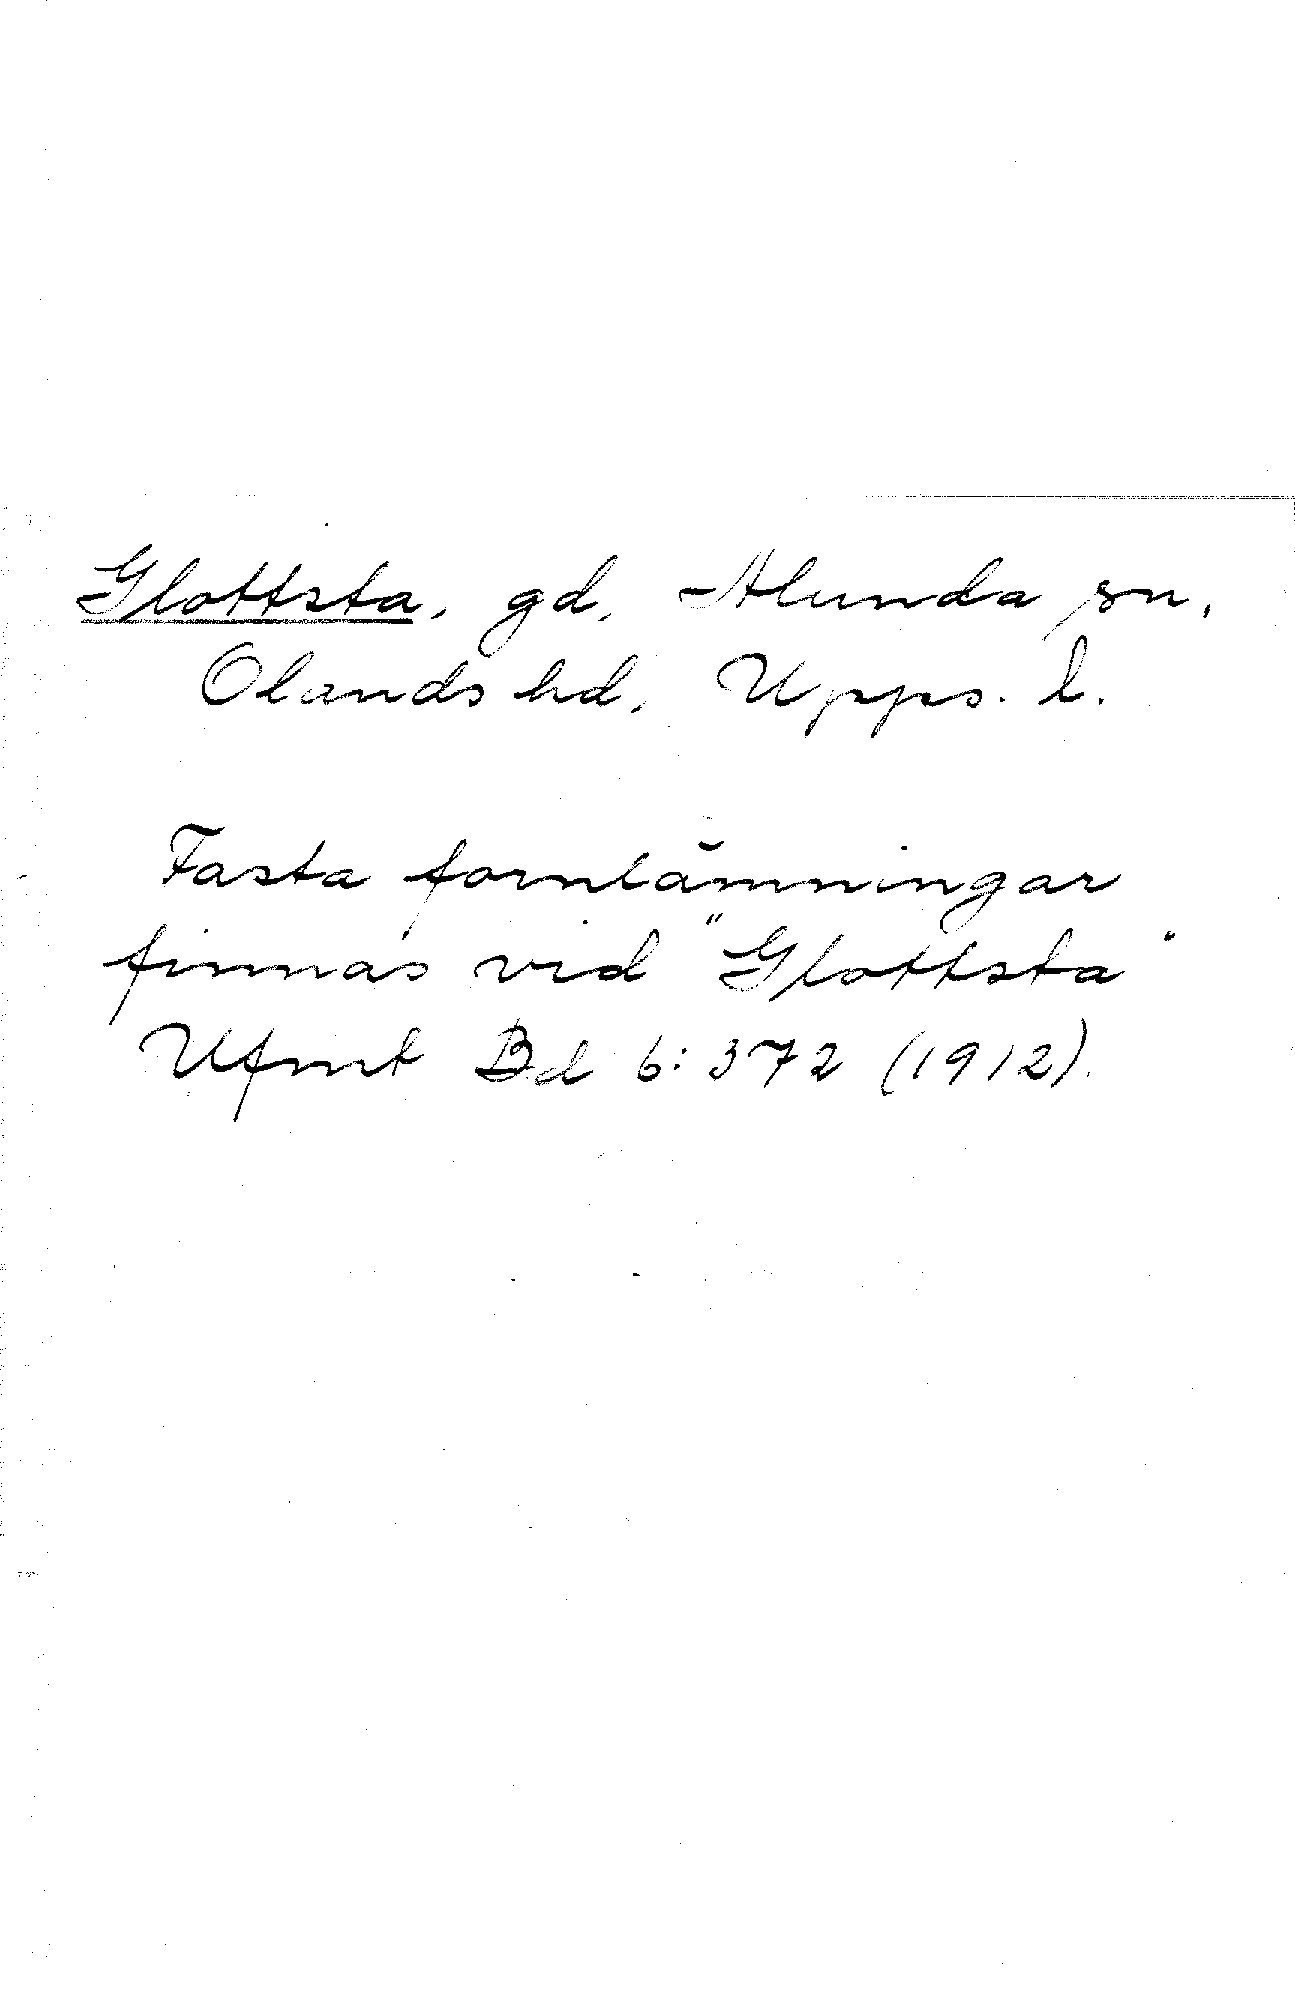 Glottsta, gd, Alunda sn,
Olands hd, Upps. l.
Fasta fornlämningar
finnas vid "Glottsta"
Ufmt Bd 6:372 (1912).